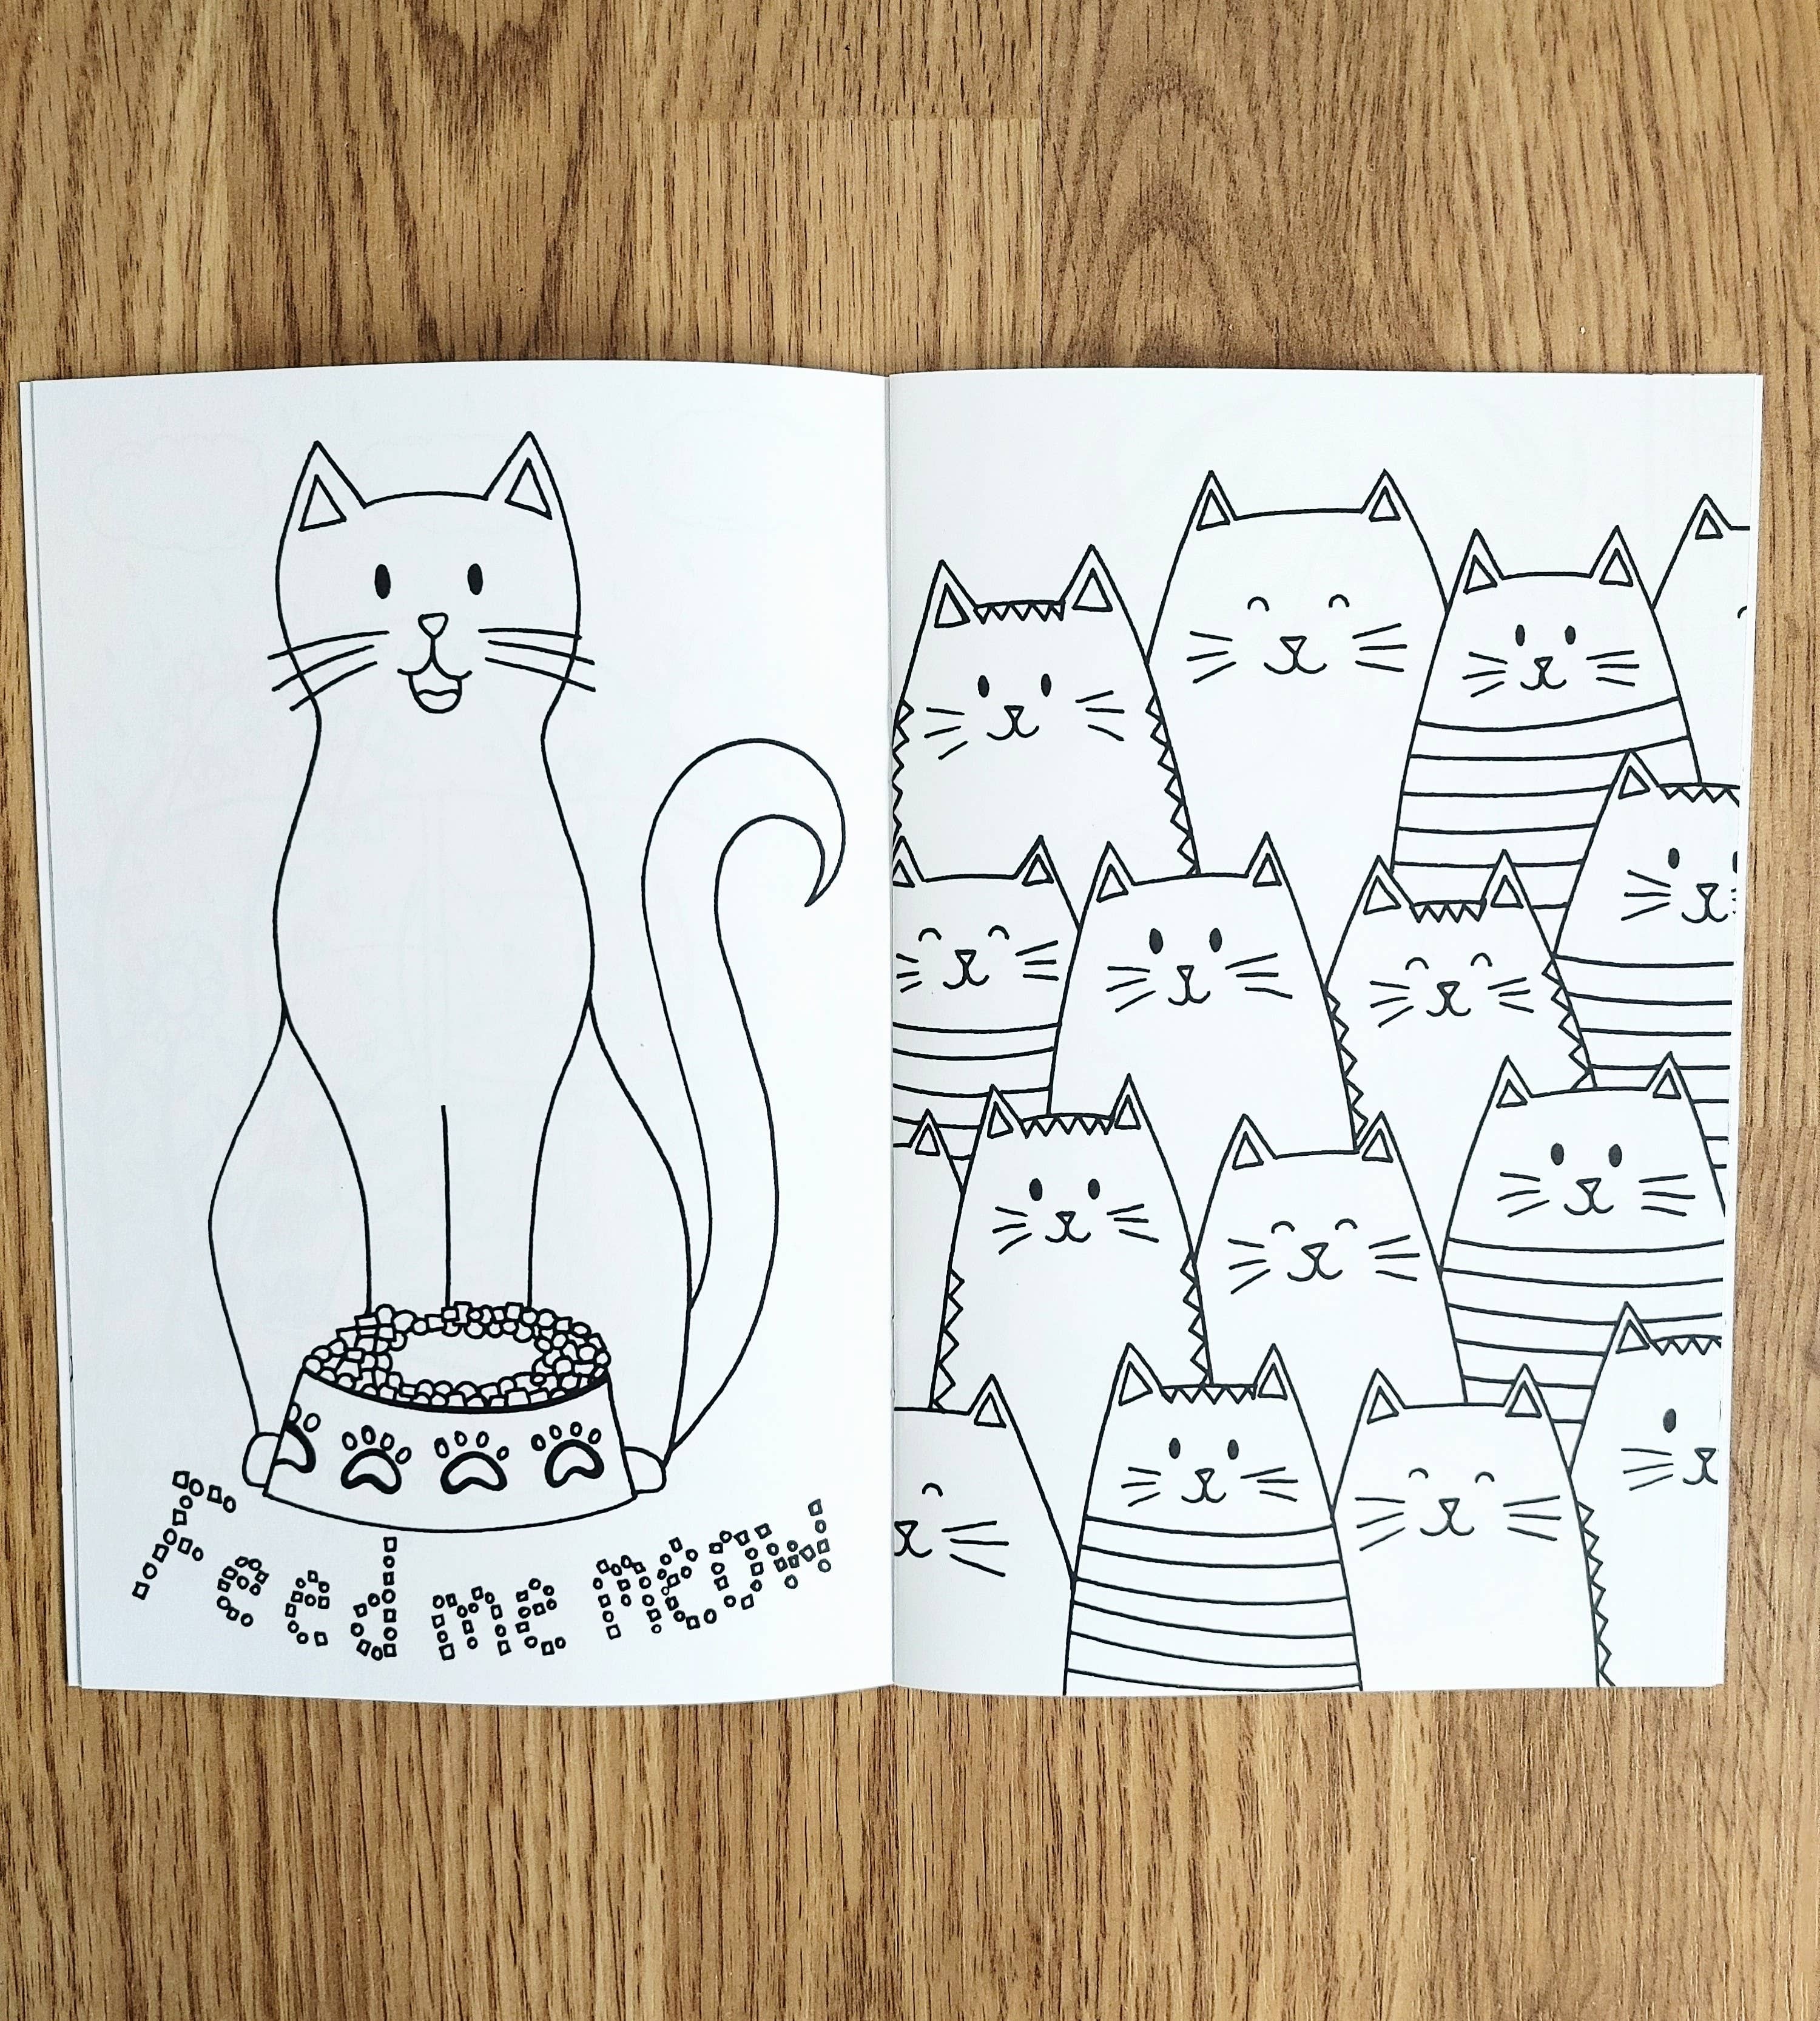 Feed me meow